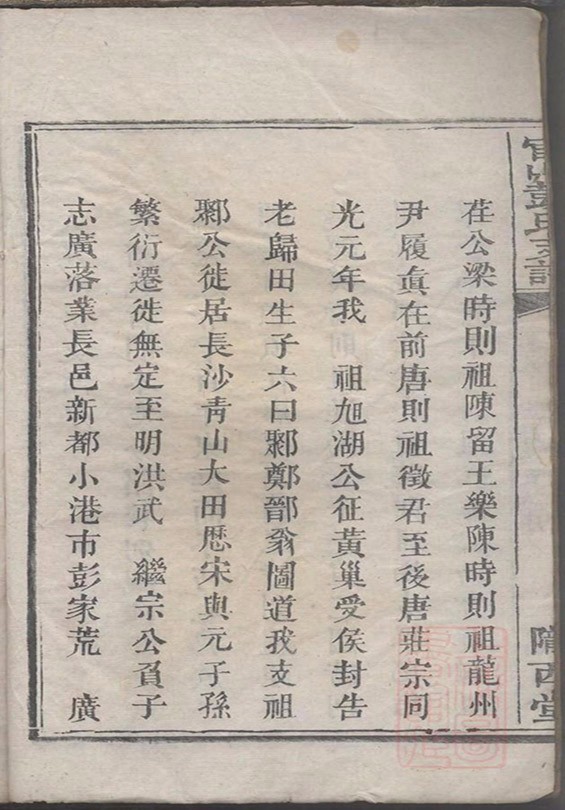 甯山彭氏支譜
隴西堂
荏公梁時則祖陳留王樂陳時則祖龍州
尹履眞在前唐則祖徵君至後唐莊宗同
光元年我 祖旭湖公征黃巢受侯封告
老歸田生子六曰郪鄭郚翁圖道我支祖
郪公徙居長沙青山大田歷宋與元子孫
繁衍遷徙無定至明洪武 繼宗公負子
志廣落業長邑新都小港市彭家荒 廣